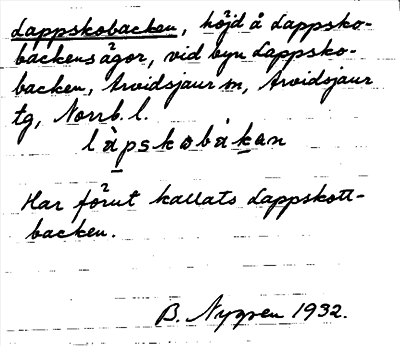 Lappskobacken, höjd å Lappsko-
backens ägor, vid byn Lappsko-
backen, Arvidsjaur sn, Arvidsjaur
tg, Norrb. l.
làpskobàkan
Har förut kallats Lappskott-
backen.
B. Nygren 1932.